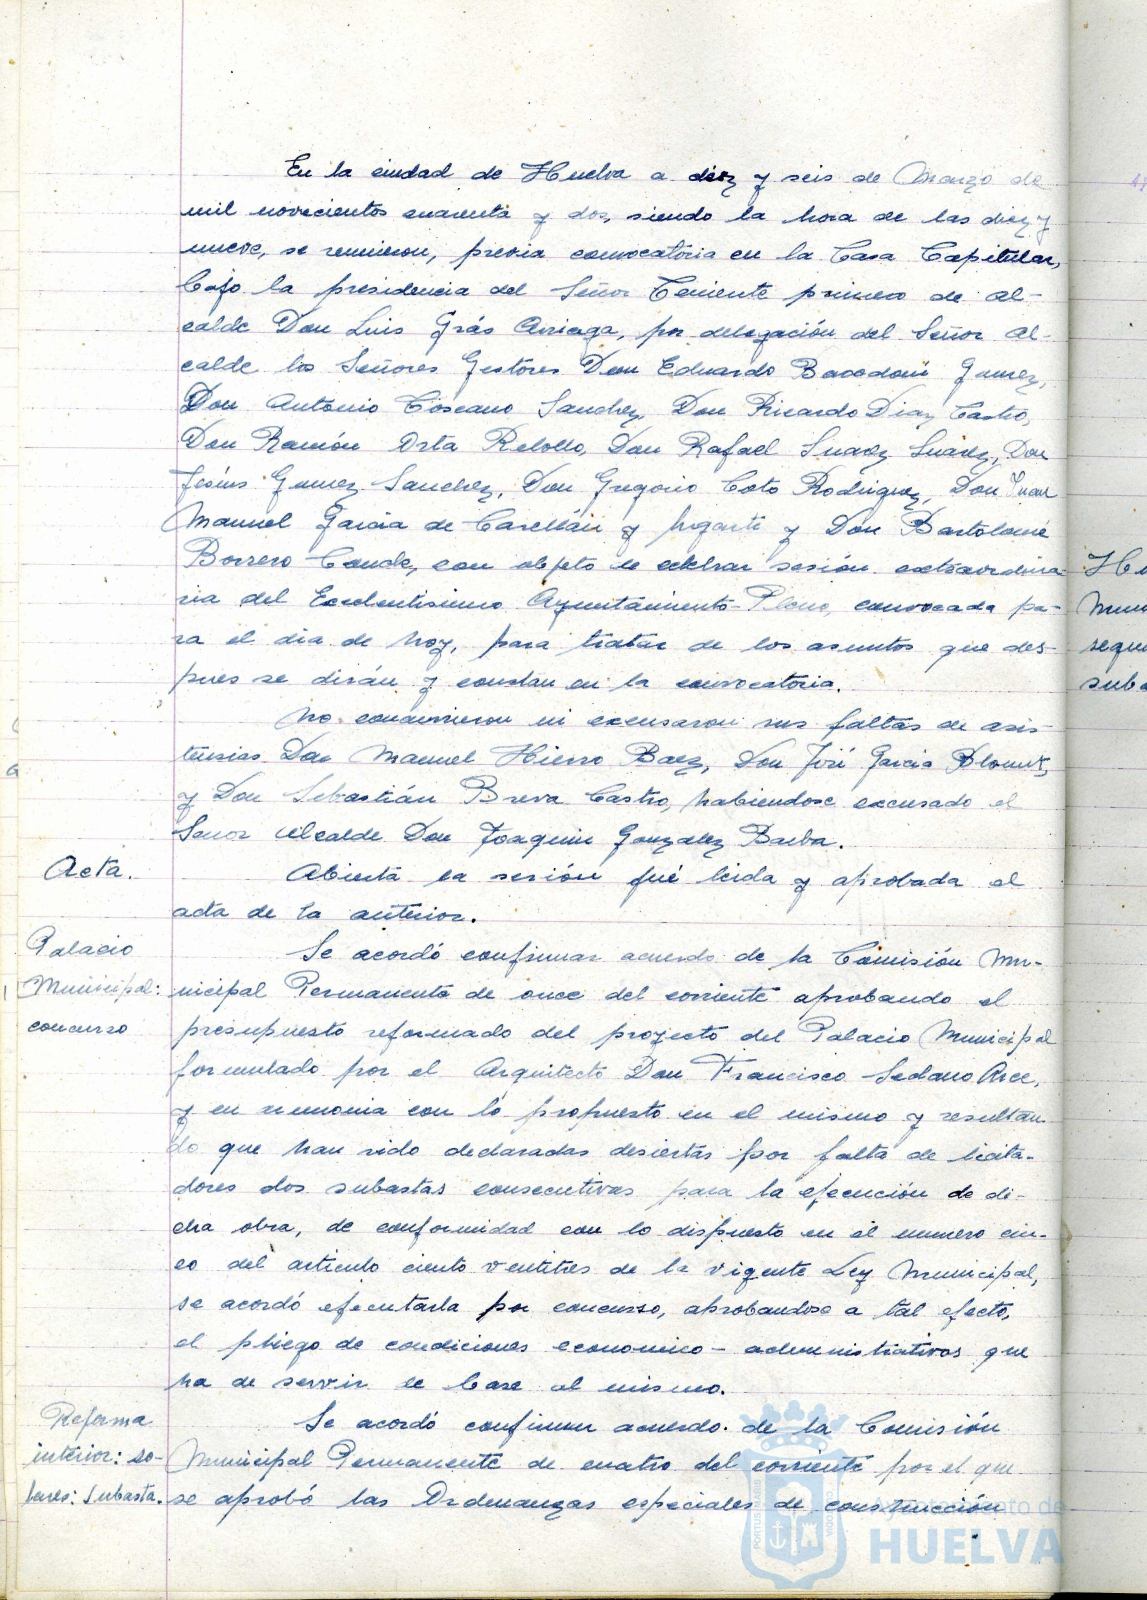 En la ciudad de Huelva a diez y seis de Marzo de
mil novecientos cuarenta y dos, siendo la hora de las diez y
nueve, se reunieron, previa convocatoria en la Casa Capitular,
bajo la presidencia del Señor Teniente primero de Al-
calde Don Luis Grás Arriaga, por delegación del Señor Al-
calde los Señores Gestores Don Eduardo Bacedoni Gomez,
Don Antonio Toscano Sanchez, Don Ricardo Diaz Castro,
Don Ramón Orta Rebollo, Don Rafael Suarez Suárez, Don
Jesús Gomez Sanchez, Don Gregorio Coto Rodriguez, Don Juan
Manuel Garcia de Castellán y Ingarti y Don Bartolomé
Borrero Conde, con objeto de celebrar sesión extraordina-
ria del Excelentisimo Ayuntamiento-Pleno, convocada pa-
ra el dia de hoy, para tratar de los asuntos que des-
pues se dirán y constan en la convocatoria.
No concurrieron ni excusaron sus faltas de asis-
tencias Don Manuel Hierro Baez, Don José Garcia
y Don Sebastián Breva Castro, habiendose excusado el
Señor Alcalde Don Joaquin Gonzalez Barba.
Acta.
Abierta la sesión fué leida y aprobada el
acta de la anterior.
Palacio
Municipal:
concurso
Se acordó confirmar acuerdo de la Comisión Mu-
nicipal Permanente de once del corriente aprobando el
presupuesto reformado del proyecto del Palacio Municipal
formulado por el Arquitecto Don Francisco Sedano Arce,
y en armonia con lo propuesto en el mismo y resultan-
do que han sido declaradas desiertas por falta de licita-
dores dos subastas consecutivas para la ejecución de di-
cha obra, de conformidad con lo dispuesto en el numero cin-
co del articulo ciento veintitres de la vigente Ley Municipal,
se acordó ejecutarla por concurso, aprobandose a tal efecto,
el pliego de condiciones economico-administrativas que
ha de servir de base al mismo.
Reforma
interior: so-
lares: Subasta.
Se acordó confirmar acuerdo de la Comisión
Municipal Permanente de cuatro del corriente por el que
se aprobó las Ordenanzas especiales de construcción
Ayuntamiento de
HUELVA